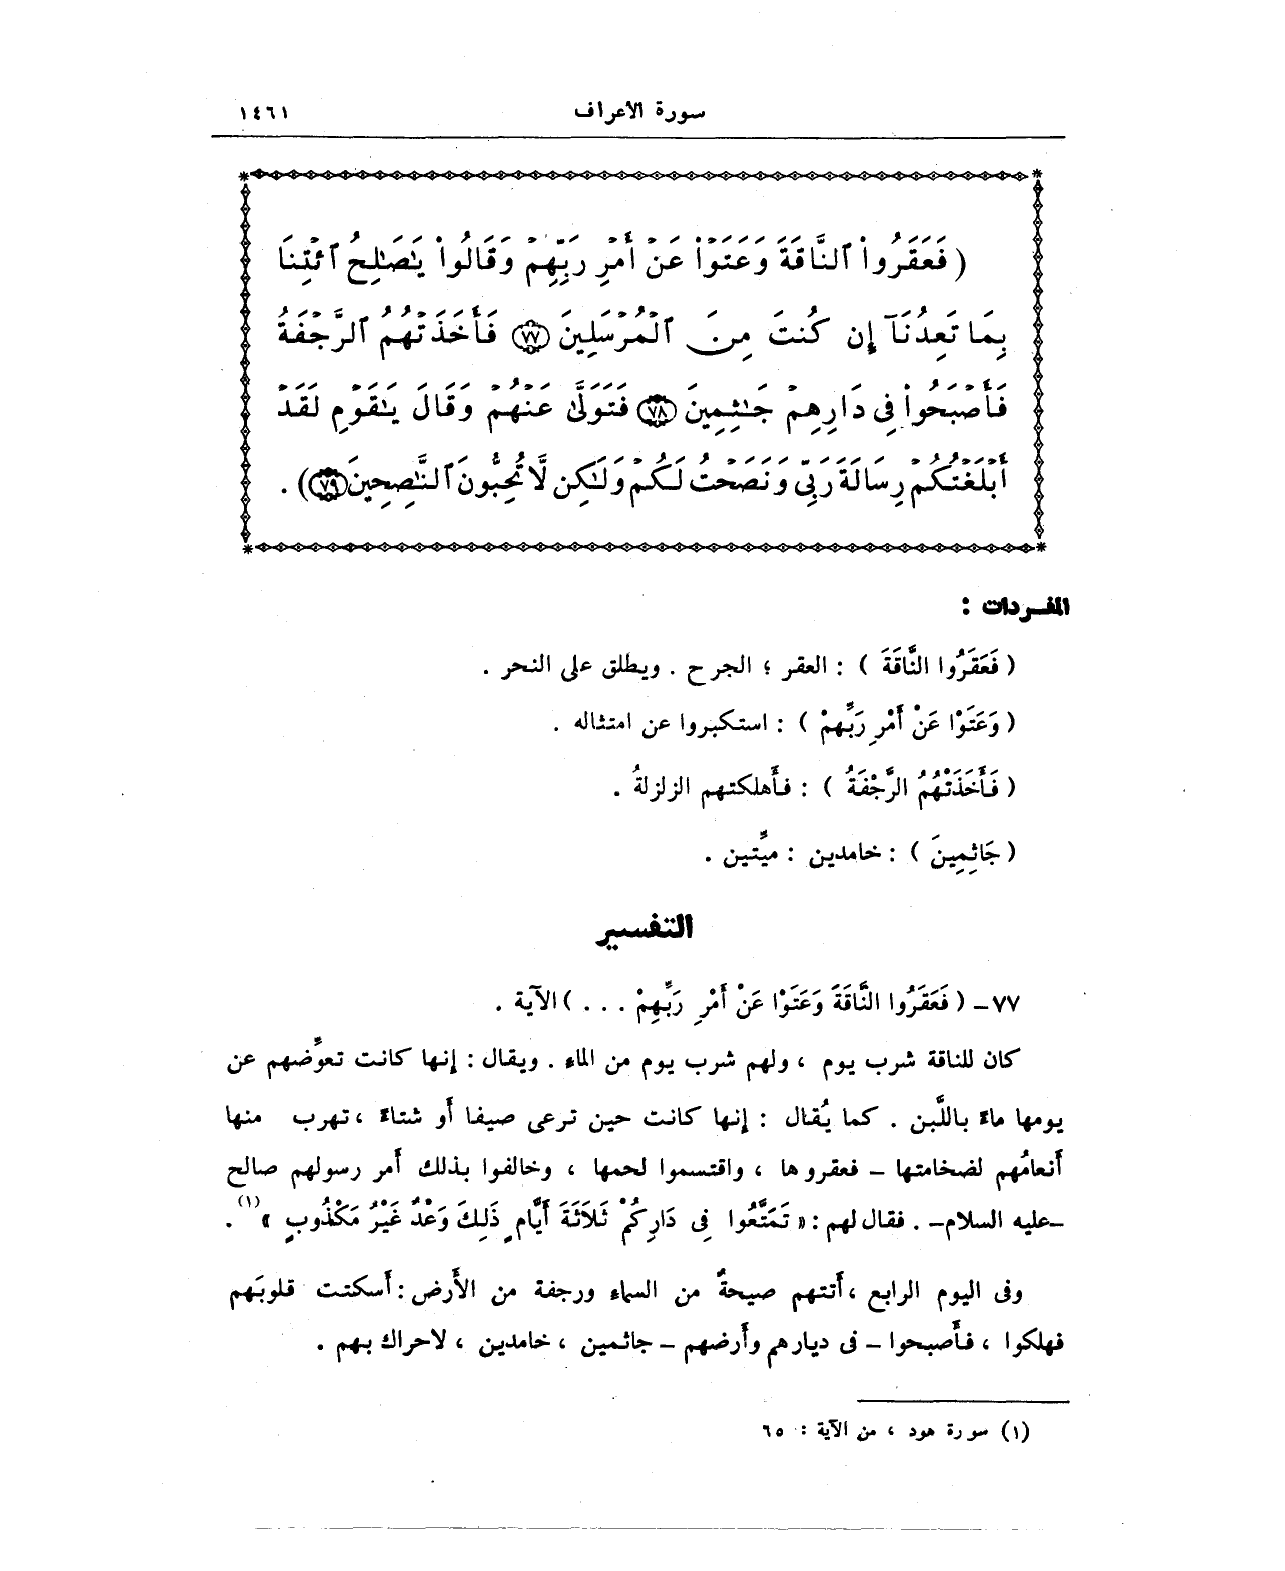 سورة الأعراف ١٤٦١
( فَعَقَرُوا۟ ٱلنَّاقَةَ وَعَتَوْا۟ عَنْ أَمْرِ رَبِّهِمْ وَقَالُوا۟ يَٰصَٰلِحُ ٱئْتِنَا
بِمَا تَعِدُنَآ إِن كُنتَ مِنَ ٱلْمُرْسَلِينَ ٧٧ فَأَخَذَتْهُمُ ٱلرَّجْفَةُ
فَأَصْبَحُوا۟ فِى دَارِهِمْ جَٰثِمِينَ ٧٨ فَتَوَلَّىٰ عَنْهُمْ وَقَالَ يَٰقَوْمِ لَقَدْ
أَبْلَغْتُكُمْ رِسَالَةَ رَبِّى وَنَصَحْتُ لَكُمْ وَلَٰكِن لَّا تُحِبُّونَ ٱلنَّٰصِحِينَ ٧٩ ) .
المفـردات :
( فَعَقَرُوا النَّاقَةَ ) : العقر ؛ الجرح . ويطلق على النحر .
( وَعَتَوْا عَنْ أَمْرِ رَبِّهِمْ ) : استكبروا عن امتثاله .
( فَأَخَذَتْهُمُ الرَّجْفَةُ ) : فأَهلكتهم الزلزلةُ .
( جَاثِمِينَ ) : خامدين : ميِّتين .
التفسير
٧٧ـ ( فَعَقَرُوا النَّاقَةَ وَعَتَوْا عَنْ أَمْرِ رَبِّهِمْ . . . ) الآية .
كان للناقة شرب يوم ، ولهم شرب يوم من الماء . ويقال : إنها كانت تعوِّضهم عن
يومها ماءً باللَّبن . كما يُقال : إنها كانت حين ترعى صيفا أَو شتاءً ، تهرب منها
أَنعامُهم لضخامتها ـ فعقروها ، واقتسموا لحمها ، وخالفوا بذلك أَمر رسولهم صالح
ـعليه السلامـ . فقال لهم : « تَمَتَّعُوا فِى دَارِكُمْ ثَلَاثَةَ أَيَّامٍ ذَلِكَ وَعْدٌ غَيْرُ مَكْذُوبٍ » (١) .
وفى اليوم الرابع ، أَتتهم صيحةٌ من السماء ورجفة من الأَرض : أَسكتت قلوبَهم
فهلكوا ، فأَصبحوا ـ فى ديارهم وأَرضهم ـ جاثمين ، خامدين ، لاحراك بهم .
(١) سورة هود ، من الآية : ٦٥